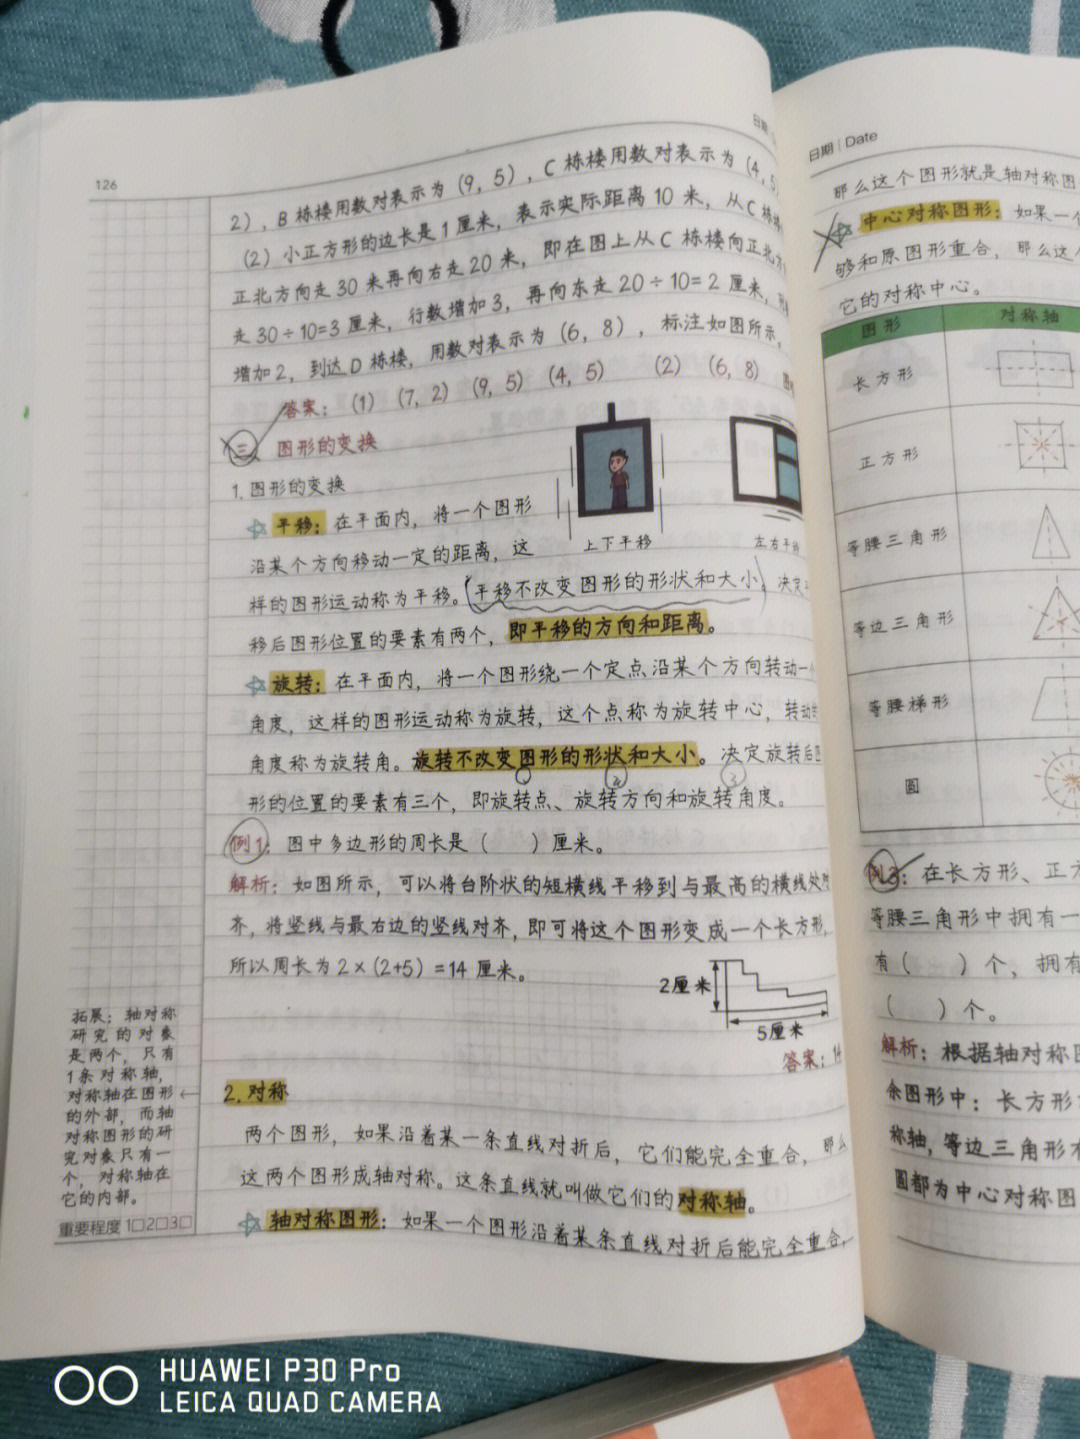 126
日期
2），B 栋楼用数对表示为（9，5），C 栋楼用数对表示为（4，5
（2）小正方形的边长是 1 厘米，表示实际距离 10 米，从 C 栋
正北方向走 30 米再向右走 20 米，即在图上从 C 栋楼向正北
走 30÷10=3 厘米，行数增加 3，再向东走 20÷10=2 厘米，
增加 2，到达 D 栋楼，用数对表示为（6，8），标注如图所示，
答案：（1）（7，2）（9，5）（4，5）（2）（6，8）
三、图形的变换
1. 图形的变换
平移：在平面内，将一个图形
沿某个方向移动一定的距离，这
样的图形运动称为平移。平移不改变图形的形状和大小。决定
移后图形位置的要素有两个，即平移的方向和距离。
上下平移
左右平
旋转：在平面内，将一个图形绕一个定点沿某个方向转动一
角度，这样的图形运动称为旋转，这个点称为旋转中心，转动
角度称为旋转角。旋转不改变图形的形状和大小。决定旋转后
形的位置的要素有三个，即旋转点、旋转方向和旋转角度。
例 1：图中多边形的周长是（　　）厘米。
解析：如图所示，可以将台阶状的短横线平移到与最高的横线处
齐，将竖线与最右边的竖线对齐，即可将这个图形变成一个长方形，
所以周长为 2×（2+5）=14 厘米。
2厘米
5厘米
答案：
2. 对称
两个图形，如果沿着某一条直线对折后，它们能完全重合，那么
这两个图形成轴对称。这条直线就叫做它们的对称轴。
轴对称图形：如果一个图形沿着某条直线对折后能完全重合，
拓展：轴对称
研究的对象
是两个，只有
1条对称轴，
对称轴在图形
的外部，而轴
对称图形的研
究对象只有一
个，对称轴在
它的内部。
重要程度 1□2□3□
日期 | Date
那么这个图形就是轴对称图
中心对称图形：如果一个
够和原图形重合，那么这
它的对称中心。
图形 对称轴
长方形
正方形
等腰三角形
等边三角形
等腰梯形
圆
例2：在长方形、正方
等腰三角形中拥有一
有（　　）个，拥有
（　　）个。
解析：根据轴对称
余图形中：长方形
称轴，等边三角形
圆都为中心对称图
HUAWEI P30 Pro
LEICA QUAD CAMERA